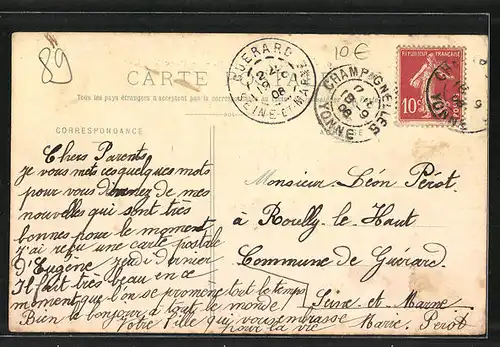 89
10€
CARTE
Tous les pays étrangers n'acceptent pas la correspondance
GUERARD
SEINE-ET-MARNE
CHAMPIGNELLES
YONNE
REPUBLIQUE FRANÇAISE
10c
CORRESPONDANCE
Chers Parents
je vous mets ces quelques mots
pour vous donnez de mes
nouvelles qui sont très
bonnes pour le moment
J'ai reçu une carte postale
d'Eugène jeudi dernier
Il fait très beau en ce
moment que l'on se promene tout le temps
Bien le bonjour à tout le monde
Votre fille qui vous embrasse
pour la vie Marie Pérot
Monsieur Léon Pérot
à Rouilly le Haut
Commune de Guérard
Seine et Marne